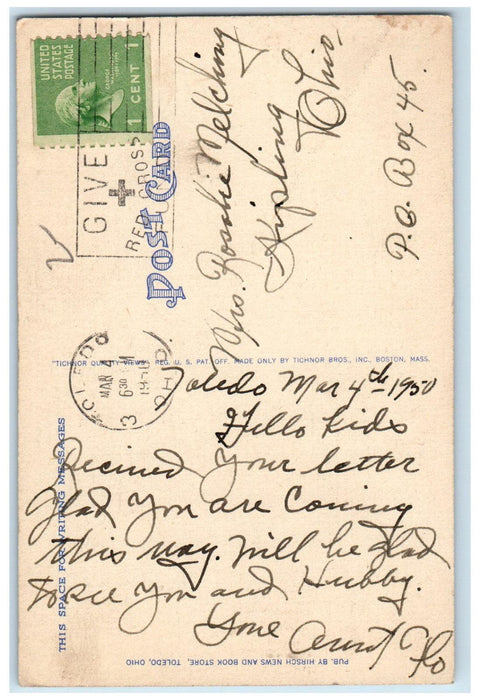 UNITED
STATES
POSTAGE
1 CENT 1
GIVE
RED CROSS
POST CARD
Mrs. Rosalie Melching
Kipling
Ohio
P.O. Box 45.
"TICHNOR QUALITY VIEWS" REG. U. S. PAT. OFF. MADE ONLY BY TICHNOR BROS., INC., BOSTON, MASS.
TOLEDO
MAR 4
6 30 M
1950
3 OHIO
THIS SPACE FOR WRITING MESSAGES
Toledo Mar 4th 1950
Hello Kids
Recived your letter
Glad you are Coming
this way. Will be glad
to see you and Hubby.
Your Aunt Flo
PUB. BY HIRSCH NEWS AND BOOK STORE, TOLEDO, OHIO